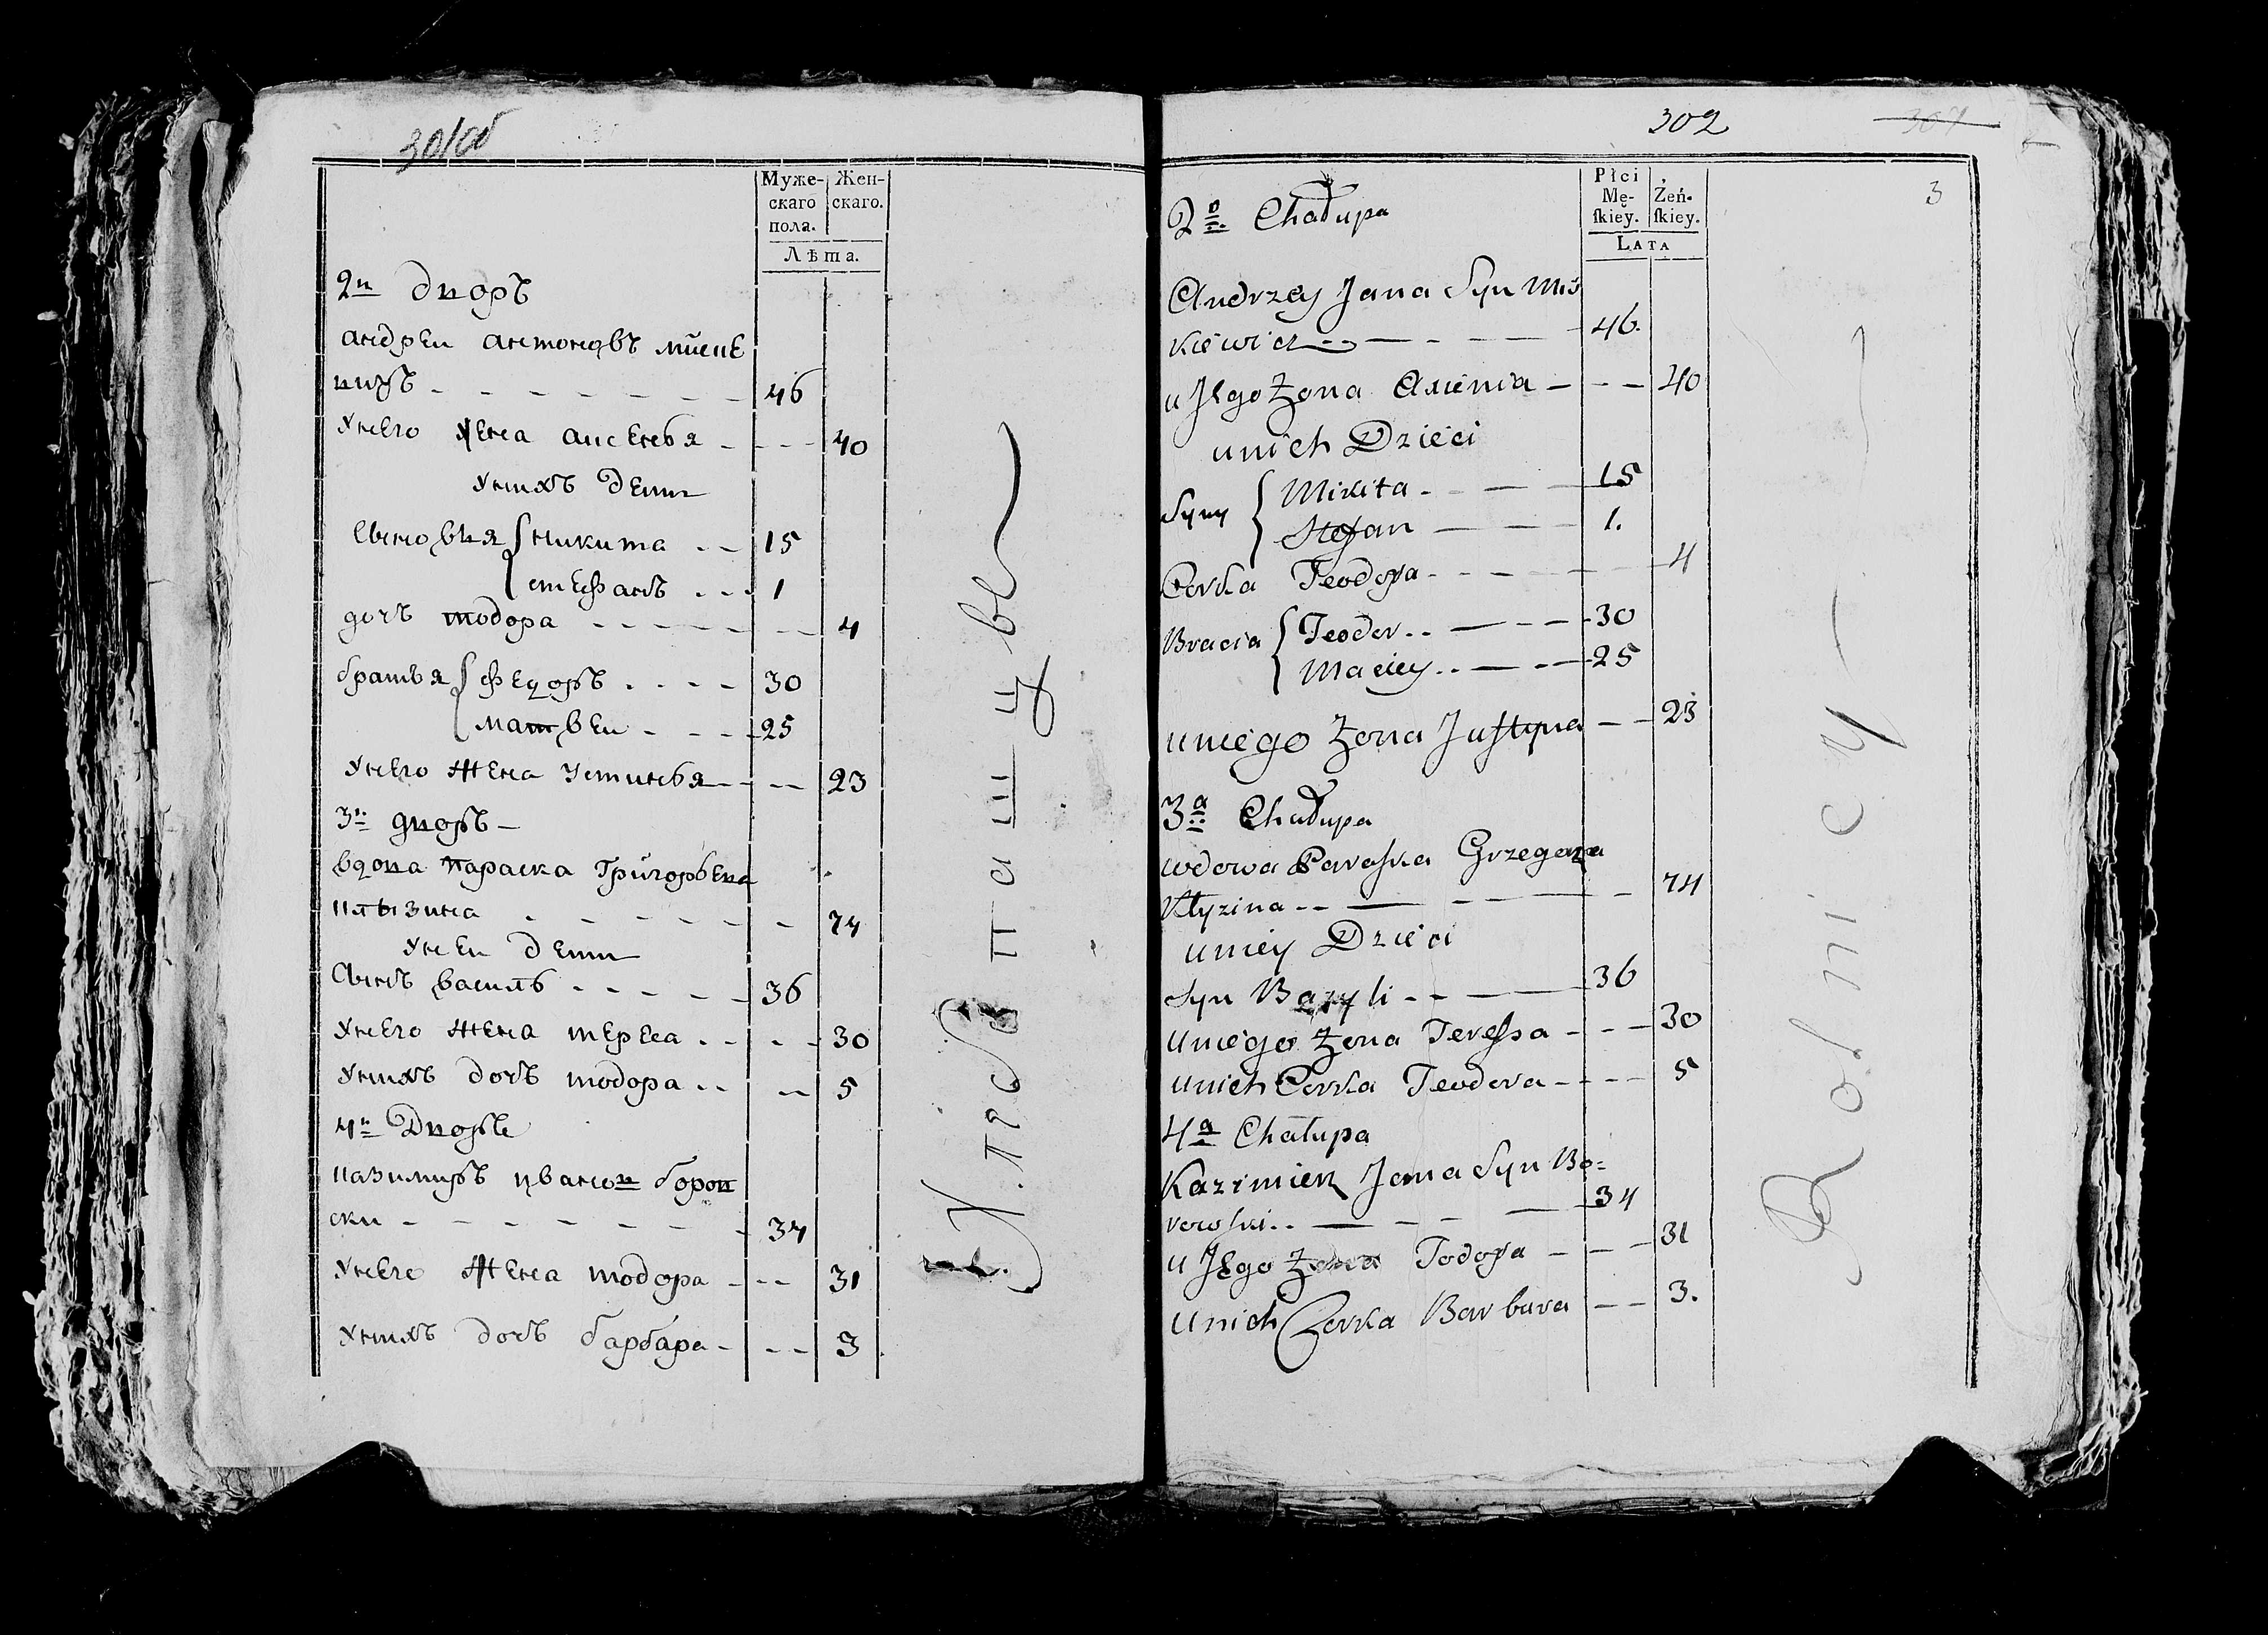 301об
Муже-
скаго
пола.
Жен-
скаго.
Лѣта.
2й дворъ
андреи антоновъ
46
унего жена аксенья 40
унихъ дети
сыновья никита 15
стефанъ 1
дочъ тодора 4
братья федоръ 30
матвеи 25
унего жена устинья 23
3й дворъ
вдова параска Григорьева
74
унеи дети
сынъ василь 36
унего жена тереса 30
унихъ дочъ тодора 5
4й дворъ
казимиръ иванов боров
ски 34
унего жена тодора 31
унихъ дочъ барбара 3
хлебопашцы все
302
3
Płci
Mę-
ſkiey.
Żeń-
ſkiey.
LATA
2a Chałupa
Andrzey Jana Syn Mis
kiewicz 46.
u Jego Żona Axienia 40
unich Dzieci
Syny Mikita 15
Stefan 1.
Corka Teodora 4
Bracia Teodor 30
Maciey 25
uniego Żona Justyna 23
3a Chałupa
wdowa Paraska Grzegorza
Kłyzina 74
uniey Dzieci
Syn Bazyli 36
uniego Żona Teressa 30
unich Corka Teodora 5
4a Chałupa
Kazimierz Jana Syn Bo=
rowski 34
u Jego Żona Todora 31
unich Corka Barbara 3.
Rolnicy